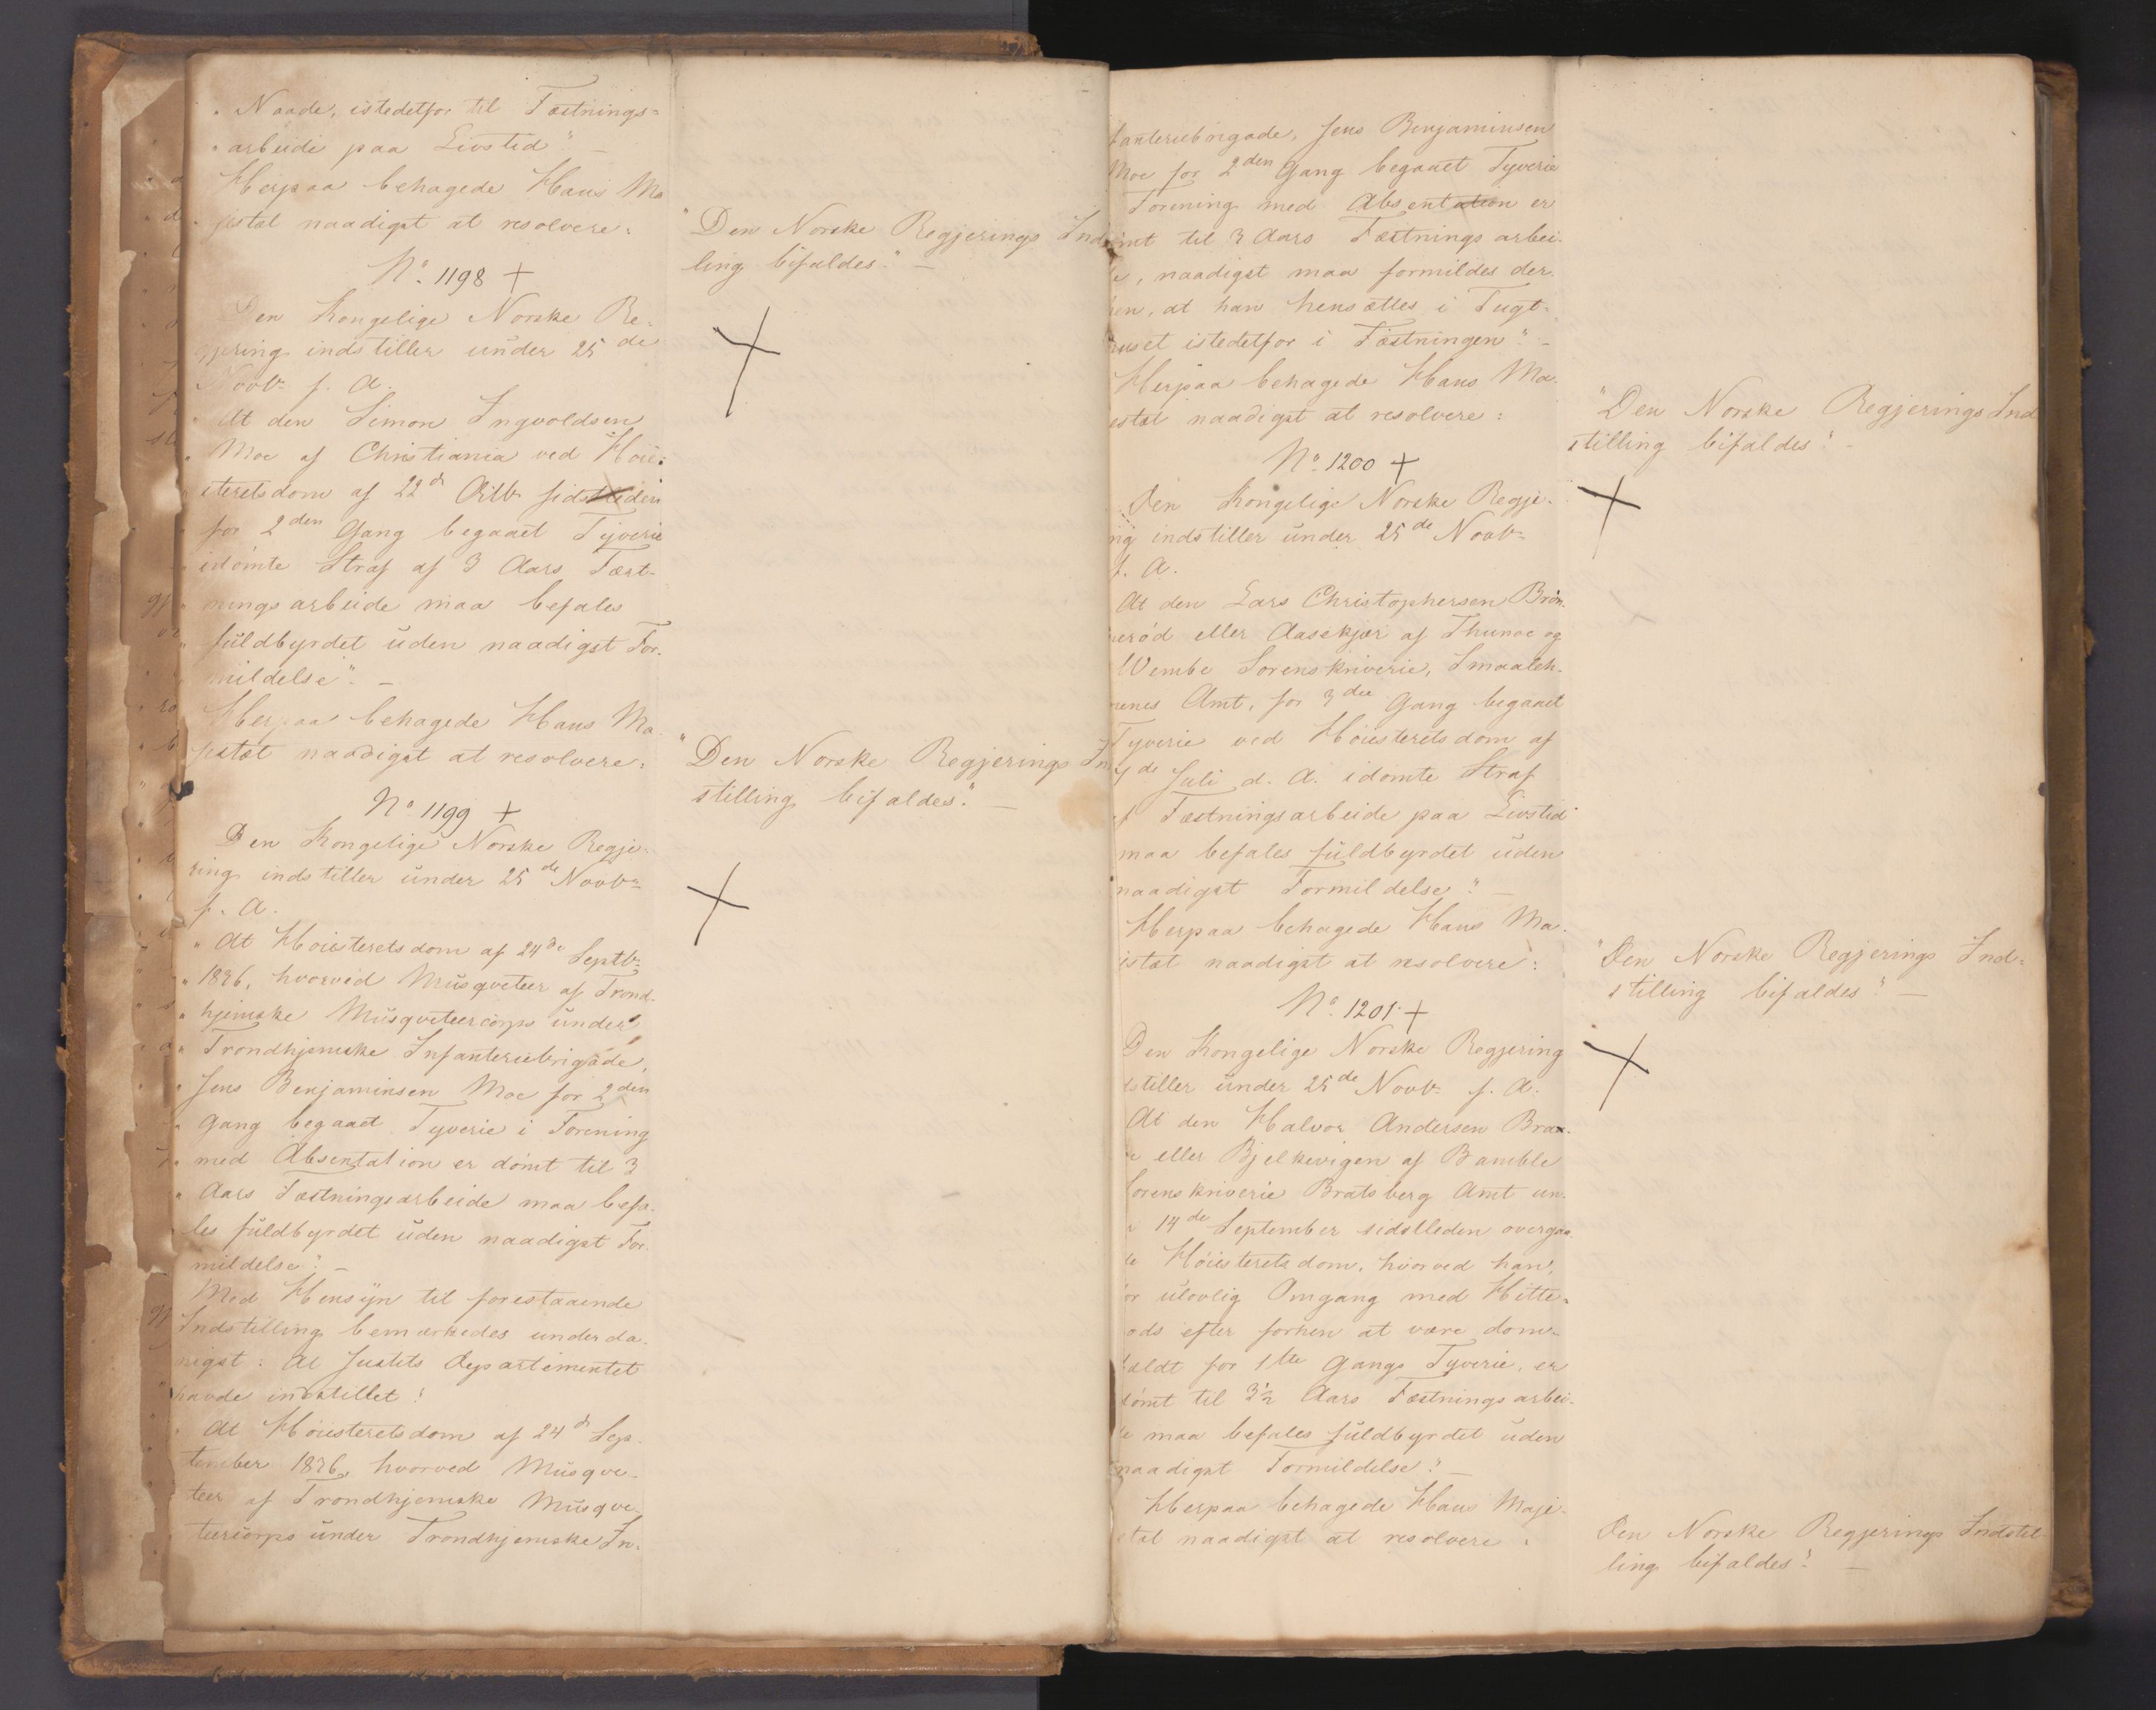 „ Naade, istedetfor til Fæstnings=
„ arbeide paa Livstid“. –
Herpaa behagede Hans Ma
jestæt naadigst at resolvere:
„Den Norske Regjerings Ind
ling bifaldes.“ –
No. 1198 +
Den Kongelige Norske Re-
gjering indstiller under 25de
Novbr f. A.
„ At den Simon Ingvoldsen
„ Moe af Christiania ved Høie-
„ steretsdom af 22d Octbr sidstleden
„ for 2den Gang begaaet Tyverie
„ idømte Straf af 3 Aars Fæst-
„ ningsarbeide maa befales
„ fuldbyrdet uden naadigst For-
„ mildelse“. –
Herpaa behagede Hans Ma-
jestæt naadigst at resolvere:
„Den Norske Regjerings In
stilling bifaldes.“ –
No. 1199 +
Den Kongelige Norske Regje-
ring indstiller under 25de Novbr
f. A.
„ At Høiesteretsdom af 24de Septbr
„ 1836, hvorved Musqveteer af Trond-
„ hjemske Musqveteercorps under
„ Trondhjemske Infanteriebrigade,
„ Jens Benjaminsen Moe for 2den
„ Gang begaaet Tyverie i Forening
„ med Absentation er dømt til 3
„ Aars Fæstningsarbeide maa befa-
les fuldbyrdet uden naadigst For-
mildelse“. –
Med Hensyn til forestaaende
Indstilling bemærkedes underda-
nigst: At Justits Departementet
havde indstillet:
„ At Høiesteretsdom af 24d Sep-
tember 1836, hvorved Musqve-
teer af Trondhjemske Musqve-
teercorps under Trondhjemske In-
fanteriebrigade, Jens Benjaminsen
Moe for 2den Gang begaaet Tyverie
Forening med Absentation er
ømt til 3 Aars Fæstningsarbei-
de, naadigst maa formildes der-
hen, at han hensættes i Tugt-
huset istedetfor i Fæstningen“. –
Herpaa behagede Hans Ma-
estæt naadigst at resolvere:
„Den Norske Regjerings Ind
stilling bifaldes“ –
No. 1200 +
Den Kongelige Norske Regje-
ng indstiller under 25de Novbr
f. A.
At den Lars Christophersen Brøn-
nerød eller Aasekjær af Thunøe og
Wembe Sorenskriverie, Smaaleh-
nenes Amt, for 3die Gang begaaet
Tyverie ved Høiesteretsdom af
de Juli d. A. idømte Straf
af Fæstningsarbeide paa Livstid
maa befales fuldbyrdet uden
naadigst Formildelse“. –
Herpaa behagede Hans Ma-
estæt naadigst at resolvere:
„Den Norske Regjerings Ind-
stilling bifaldes“. –
No. 1201. +
Den Kongelige Norske Regjering
dstiller under 25de Novbr f. A.
At den Halvor Andersen Braa-
e eller Bjelkevigen af Bamble
Sorenskriverie Bratsberg Amt un-
r 14de September sidstleden overgaa-
de Høiesteretsdom, hvorved han,
for ulovlig Omgang med Hitte-
gods efter forhen at være dom-
fældt for 1ste Gangs Tyverie, er
dømt til 3½ Aars Fæstningsarbei-
de maa befales fuldbyrdet uden
naadigst Formildelse“. –
Herpaa behagede Hans Maje-
stæt naadigst at resolvere:
Den Norske Regjerings Indstil
ling bifaldes“. –